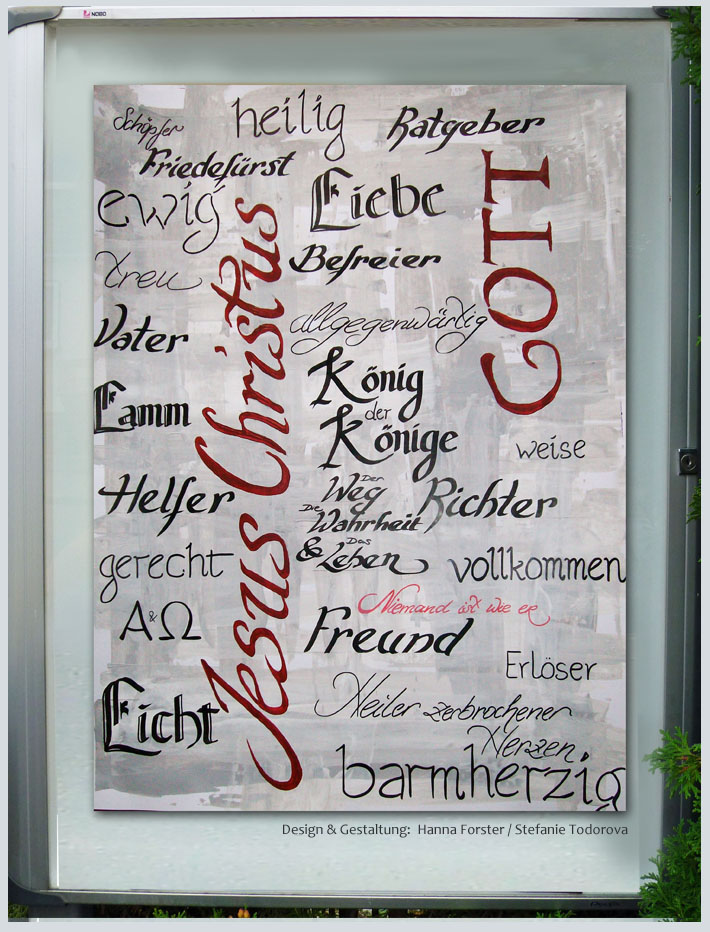 NOBO
Schöpfer
heilig
Ratgeber
Friedefürst
ewig
Liebe
GOTT
treu
Befreier
Vater
allgegenwärtig
Jesus Christus
Lamm
König
der
Könige
weise
Helfer
Der
Weg
Die
Wahrheit
Das
& Leben
Richter
gerecht
vollkommen
A&Ω
Niemand ist wie er
Freund
Erlöser
Licht
Heiler zerbrochener
Herzen
barmherzig
Design & Gestaltung: Hanna Forster / Stefanie Todorova